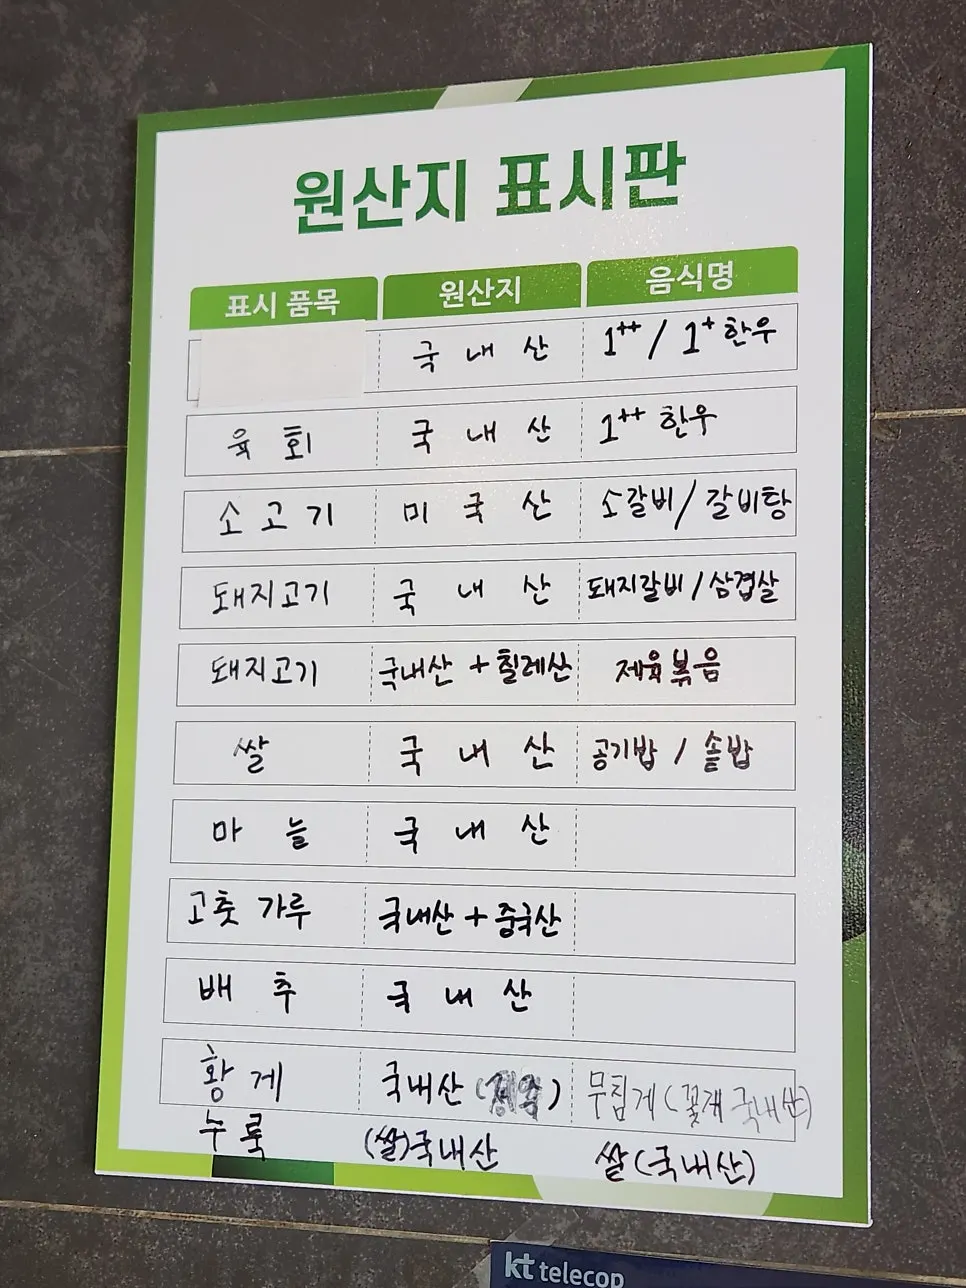 원산지 표시판
표시 품목 원산지 음식명
국내산 1++ / 1+ 한우
육회 국내산 1++ 한우
소고기 미국산 소갈비 / 갈비탕
돼지고기 국내산 돼지갈비 / 삼겹살
돼지고기 국내산 + 칠레산 제육볶음
쌀 국내산 공기밥 / 솥밥
마늘 국내산
고춧가루 국내산 + 중국산
배추 국내산
황게 국내산 ( ) 무침게 (꽃게 국내산)
누룩 (쌀)국내산 쌀 (국내산)
kt telecop